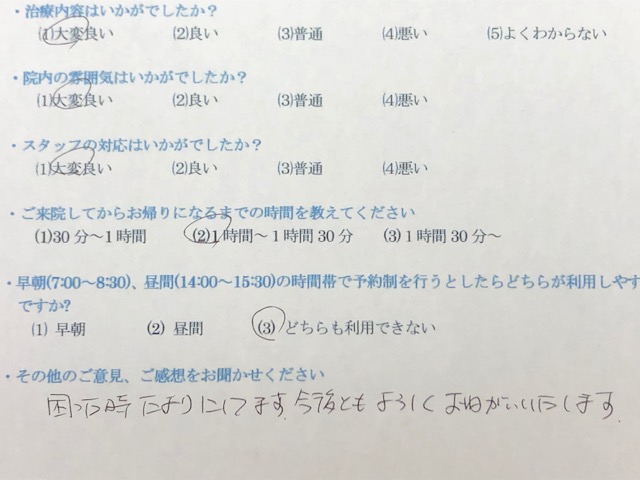 ・治療内容はいかがでしたか？
(1)大変良い (2)良い (3)普通 (4)悪い (5)よくわからない
・院内の雰囲気はいかがでしたか？
(1)大変良い (2)良い (3)普通 (4)悪い
・スタッフの対応はいかがでしたか？
(1)大変良い (2)良い (3)普通 (4)悪い
・ご来院してからお帰りになるまでの時間を教えてください
(1)30分～1時間 (2)1時間～1時間30分 (3)1時間30分～
・早朝(7:00～8:30)、昼間(14:00～15:30)の時間帯で予約制を行うとしたらどちらが利用しやす
ですか?
(1) 早朝 (2) 昼間 (3) どちらも利用できない
・その他のご意見、ご感想をお聞かせください
困った時たよりにしてます。今後ともよろしくおねがいいたします